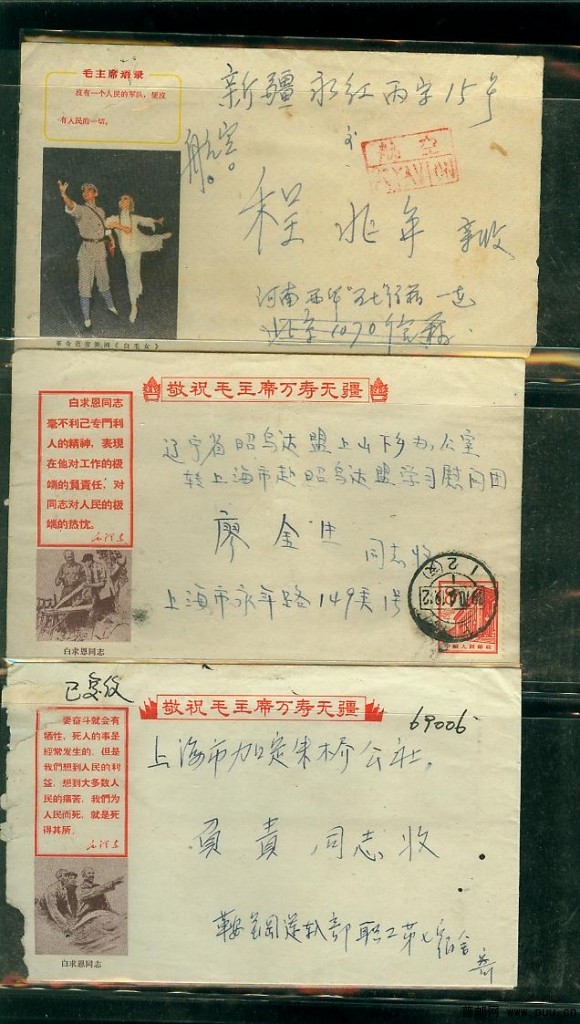 毛主席语录
没有一个人民的军队,便没
有人民的一切。
新疆永红丙字15号
航空。
航空
PAR AVION
程兆年 亲收
河南西华
北京1070信箱
革命芭蕾舞剧《白毛女》
敬祝毛主席万寿无疆
白求恩同志
毫不利己专門利
人的精神,表現
在他对工作的极
端的負責任,对
同志对人民的极
端的热忱。
毛泽东
白求恩同志
辽宁省昭乌达盟上山下乡办公室
转上海市赴昭乌达盟学习慰问团
廖金生
同志收
上海市永年路149弄1号
中国人民邮政
已复
敬祝毛主席万寿无疆
69006
要奋斗就会有
牺牲,死人的事是
经常发生的。但是
我們想到人民的利
益,想到大多数人
民的痛苦,我們为
人民而死,就是死
得其所。
毛泽东
白求恩同志
上海市加定朱桥公社,
负责同志收
鞍钢运输部职工第七宿舍
寄
www.puu.cn